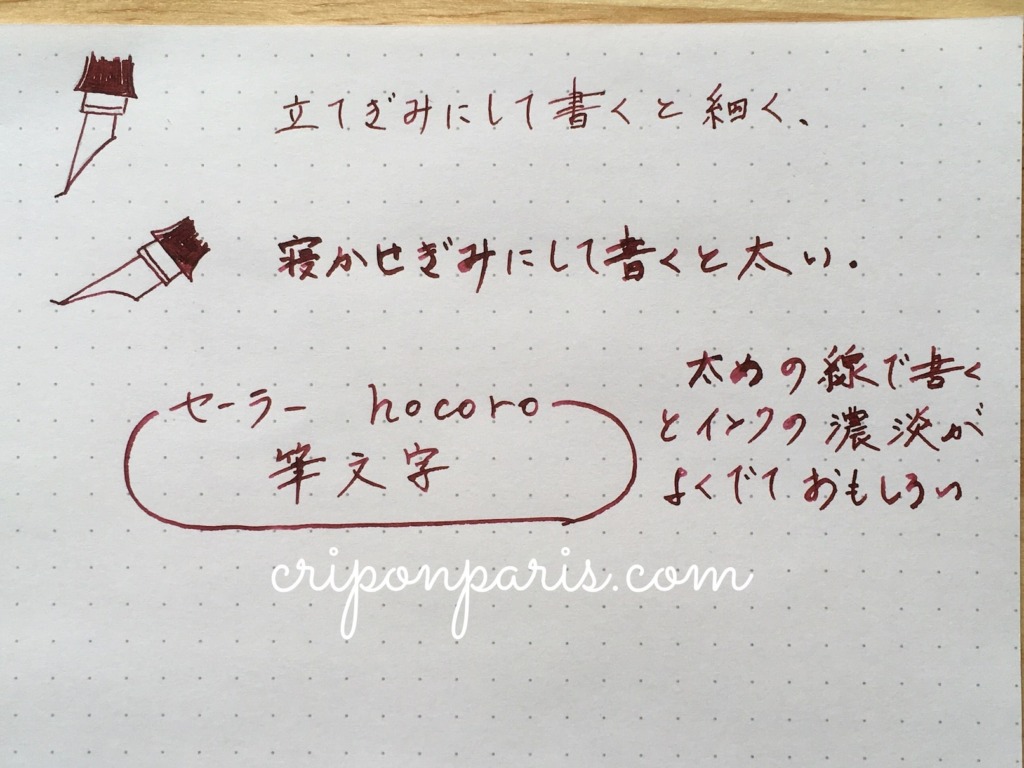 立てぎみにして書くと細く、
寝かせぎみにして書くと太い.
太めの線で書く
とインクの濃淡が
よくでておもしろい
セーラー hocoro
筆文字
criponparis.com